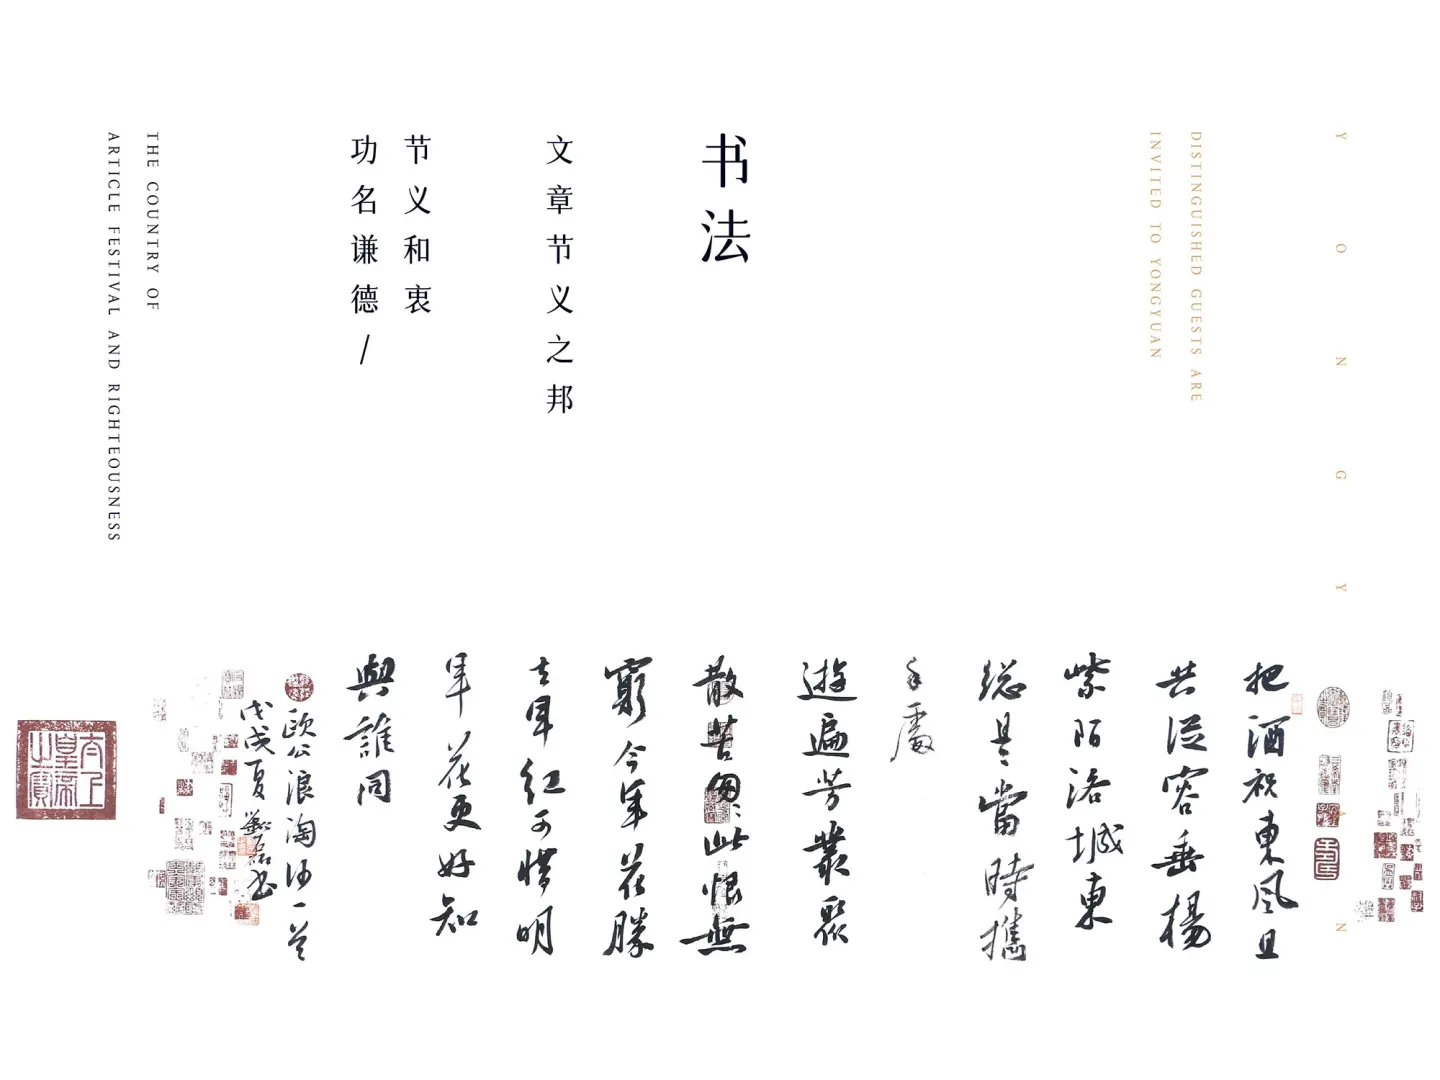 YONGYUAN
DISTINGUISHED GUESTS ARE
INVITED TO YONGYUAN
书法
文章节义之邦
节义和衷
功名谦德/
THE COUNTRY OF
ARTICLE FESTIVAL AND RIGHTEOUSNESS
把酒祝東風且
共從容垂楊
紫陌洛城東
總是當時攜
手處
遊遍芳叢聚
散苦匆匆此恨無
窮今年花勝
去年紅可惜明
年花更好知
與誰同
歐公浪淘沙一首
戊戌夏
磊書
太上
皇帝
之寶